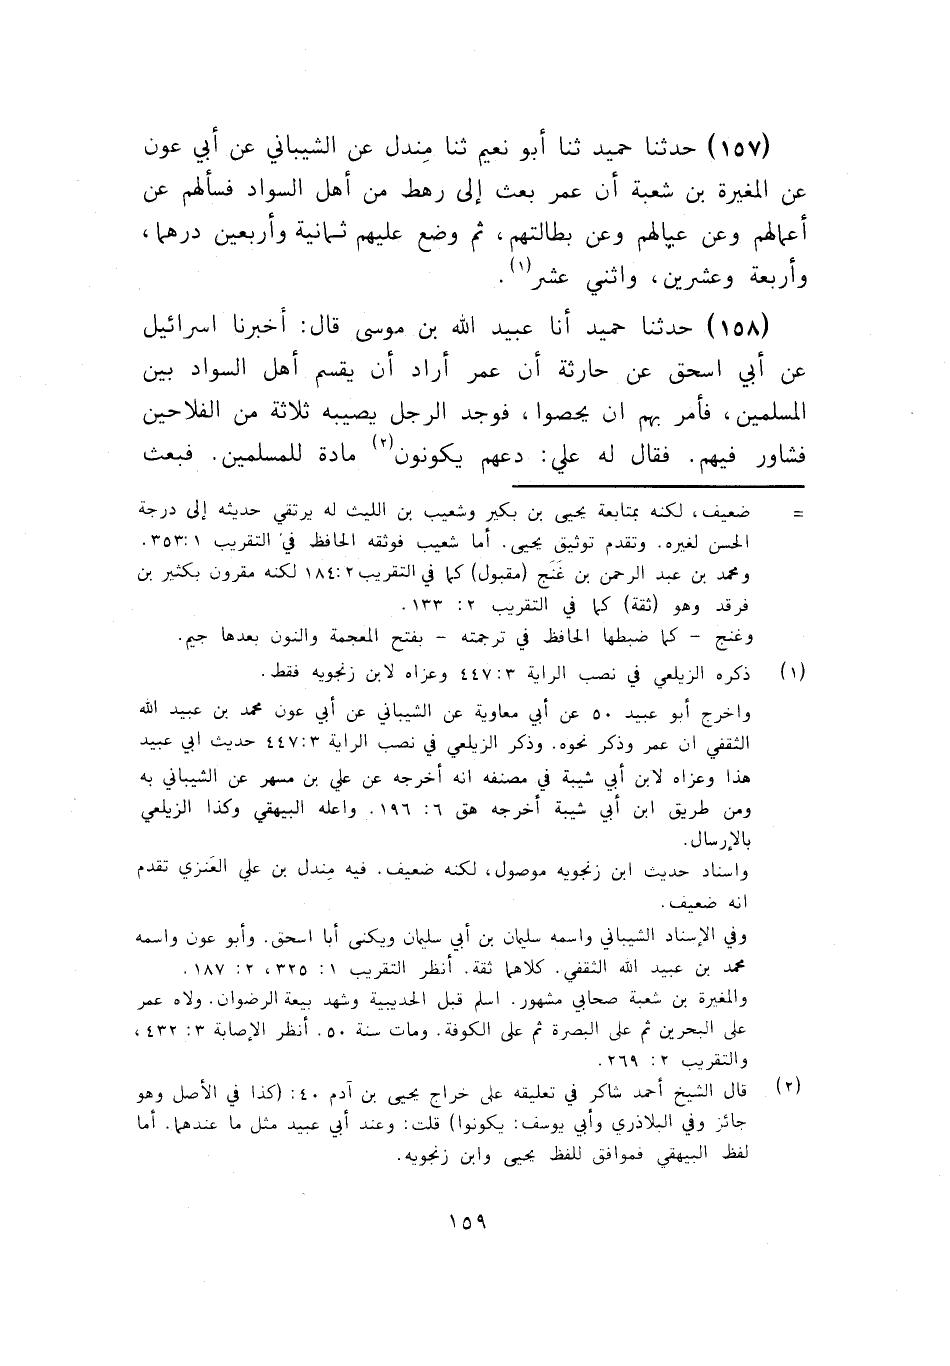 (١٥٧) حدثنا حميد ثنا أبو نعيم ثنا مِندل عن الشيباني عن أبي عون
عن المغيرة بن شعبة أن عمر بعث إلى رهط من أهل السواد فسألهم عن
أعمالهم وعن عيالهم وعن بطالتهم، ثم وضع عليهم ثمانية وأربعين درهما،
وأربعة وعشرين، واثني عشر(١).
(١٥٨) حدثنا حميد أنا عبيد الله بن موسى قال: أخبرنا اسرائيل
عن أبي اسحق عن حارثة أن عمر أراد أن يقسم أهل السواد بين
المسلمين، فأمر بهم ان يحصوا، فوجد الرجل يصيبه ثلاثة من الفلاحين
فشاور فيهم. فقال له علي: دعهم يكونون(٢) مادة للمسلمين. فبعث
= ضعيف، لكنه بمتابعة يحيى بن بكير وشعيب بن الليث له يرتقي حديثه إلى درجة
الحسن لغيره. وتقدم توثيق يحيى. أما شعيب فوثقه الحافظ في التقريب ٣٥٣:١.
ومحمد بن عبد الرحمن بن غَنَج (مقبول) كما في التقريب ١٨٤:٢ لكنه مقرون بكثير بن
فرقد وهو (ثقة) كما في التقريب ٢: ١٣٣.
وغنج - كما ضبطها الحافظ في ترجمته - بفتح المعجمة والنون بعدها جيم.
(١) ذكره الزيلعي في نصب الراية ٤٤٧:٣ وعزاه لابن زنجويه فقط.
واخرج أبو عبيد ٥٠ عن أبي معاوية عن الشيباني عن أبي عون محمد بن عبيد الله
الثقفي ان عمر وذكر نحوه. وذكر الزيلعي في نصب الراية ٤٤٧:٣ حديث ابي عبيد
هذا وعزاه لابن أبي شيبة في مصنفه انه أخرجه عن علي بن مسهر عن الشيباني به
ومن طريق ابن أبي شيبة أخرجه هق ٦: ١٩٦. واعله البيهقي وكذا الزيلعي
بالإرسال.
واسناد حديث ابن زنجويه موصول، لكنه ضعيف. فيه مِندل بن علي العَنزي تقدم
انه ضعيف.
وفي الإسناد الشيباني واسمه سليمان بن أبي سليمان ويكنى أبا اسحق. وأبو عون واسمه
محمد بن عبيد الله الثقفي. كلاهما ثقة. أنظر التقريب ١: ٣٢٥، ٢: ١٨٧.
والمغيرة بن شعبة صحابي مشهور. اسلم قبل الحديبية وشهد بيعة الرضوان. ولاه عمر
على البحرين ثم على البصرة ثم على الكوفة. ومات سنة ٥٠. أنظر الإصابة ٣: ٤٣٢،
والتقريب ٢: ٢٦٩.
(٢) قال الشيخ أحمد شاكر في تعليقه على خراج يحيى بن آدم ٤٠: (كذا في الأصل وهو
جائز وفي البلاذري وأبي يوسف: يكونوا) قلت: وعند أبي عبيد مثل ما عندهما. أما
لفظ البيهقي فموافق للفظ يحيى وابن زنجويه.
١٥٩